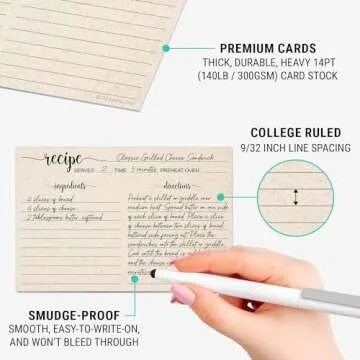 PREMIUM CARDS
THICK, DURABLE, HEAVY 14PT
(140LB / 300GSM) CARD STOCK
COLLEGE RULED
9/32 INCH LINE SPACING
recipe
Classic Grilled Cheese Sandwich
SERVES 2 TIME 5 minutes PREHEAT OVEN
ingredients
directions
4 slices of bread
4 slices of cheese
2 tablespoons butter, softened
Preheat a skillet or griddle over
medium heat. Spread butter on one side
of each slice of bread. Place a slice
of cheese between two slices of bread,
buttered side facing out. Place the
sandwiches into the skillet or griddle.
Cook until the bread is
and the cheese
minutes
SMUDGE-PROOF
SMOOTH, EASY-TO-WRITE-ON,
AND WON'T BLEED THROUGH